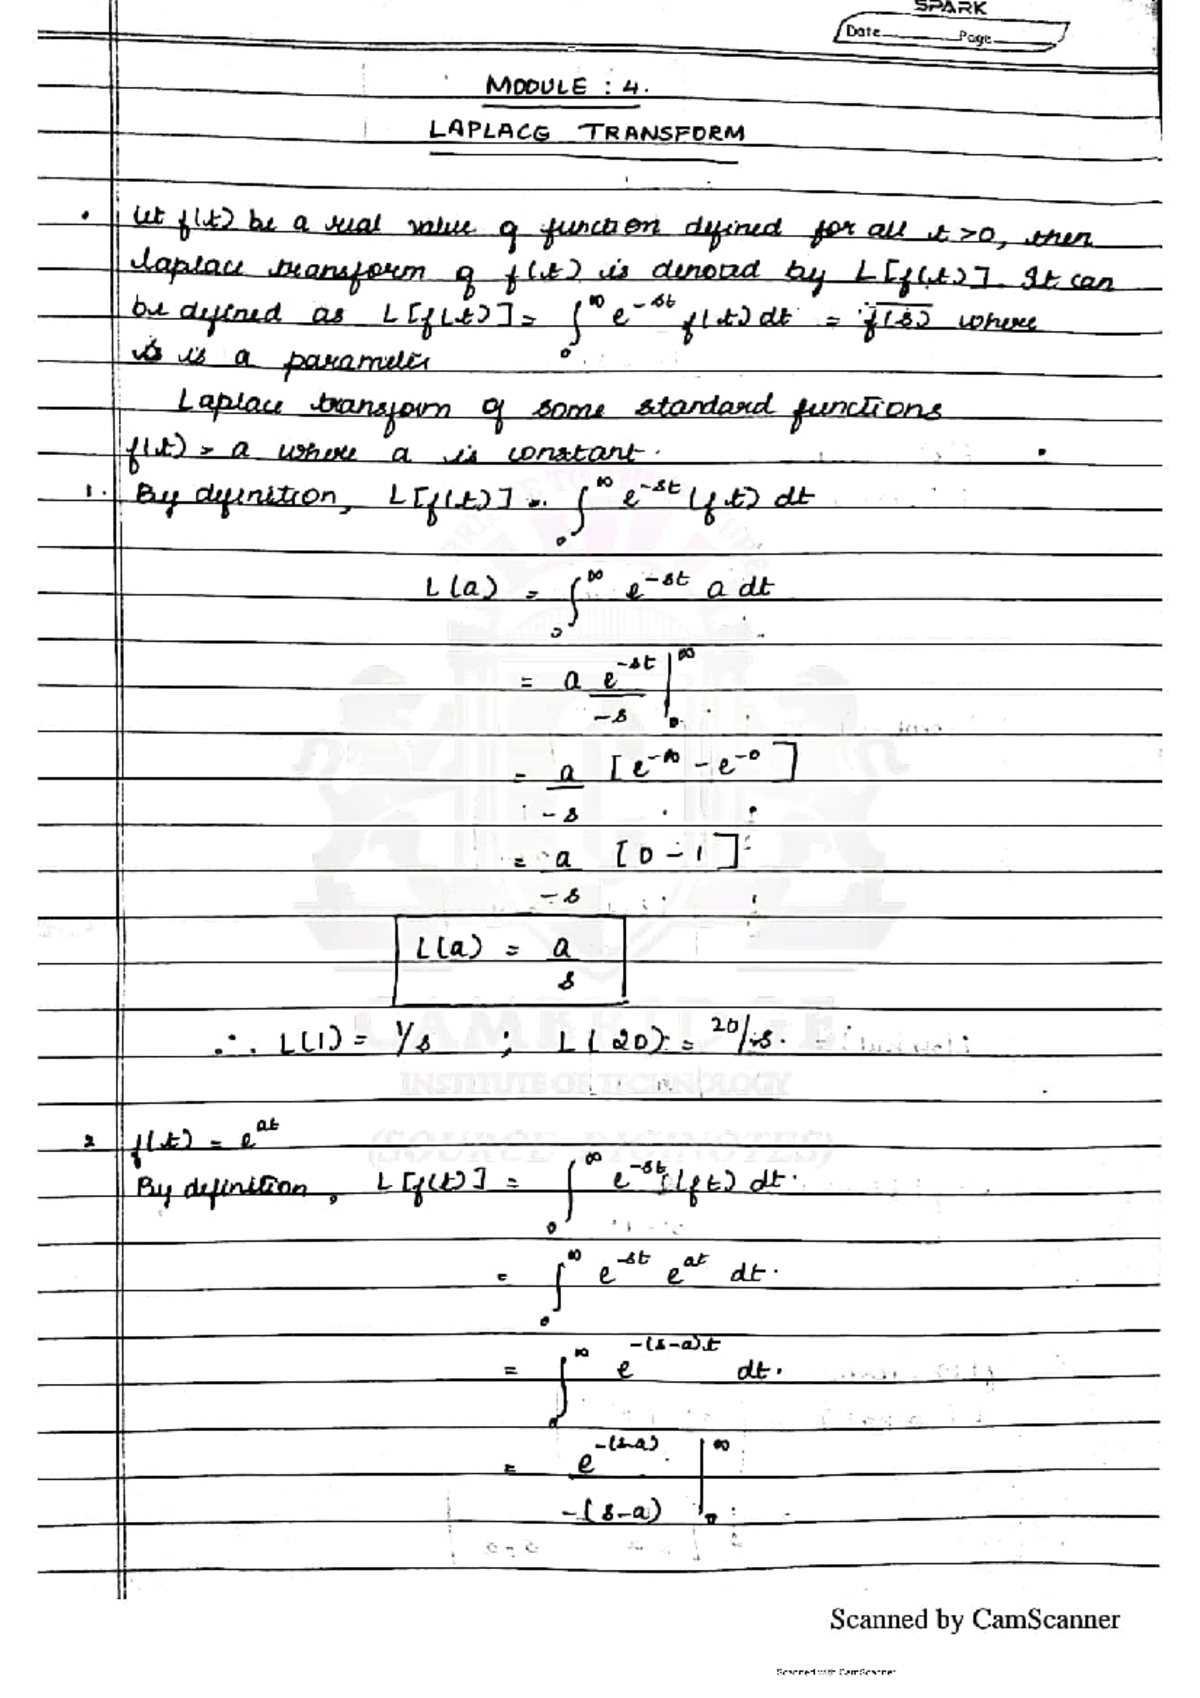 SPARK
Date Page
MODULE : 4.
LAPLACE TRANSFORM
• Let f(t) be a real value of function defined for all t >0, then
laplace transform of f(t) is denoted by L[f(t)]. It can
be defined as L[f(t)] = ∫₀^∞ e^-st f(t) dt = f(s) where
s is a parameter
Laplace transform of some standard functions
f(t) = a where a is constant.
1. By definition, L[f(t)] = ∫₀^∞ e^-st (f t) dt
L(a) = ∫₀^∞ e^-st a dt
= a e^-st / -s |₀^∞
= a / -s [e^-∞ - e^-0]
= a / -s [0 - 1]
L(a) = a / s
∴ L(1) = 1/s ; L(20) = 20/s.
CAMBRIDGE
INSTITUTE OF TECHNOLOGY
(SOURCE DIGINOTES)
2 f(t) = e^at
By definition, L[f(t)] = ∫₀^∞ e^-st (f t) dt.
= ∫₀^∞ e^-st e^at dt.
= ∫₀^∞ e^-(s-a)t dt.
= e^-(s-a) / -(s-a) |₀^∞
Scanned by CamScanner
Scanned with CamScanner